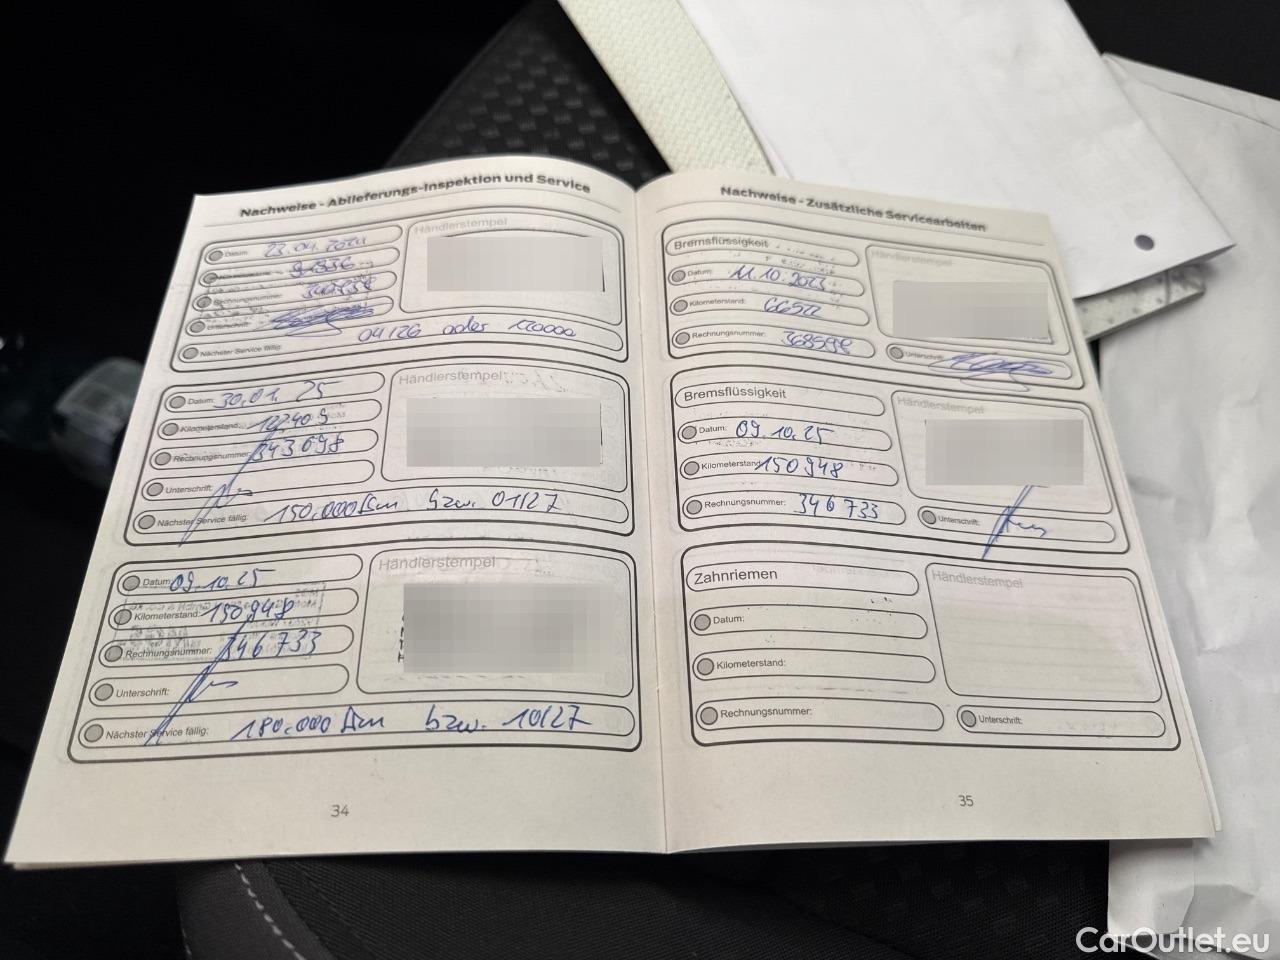 Nachweise - Ablieferungs-Inspektion und Service
Datum: 23.04.2024
Händlerstempel
Rechnungsnummer:
Unterschrift:
Nächster Service fällig: 04/26 oder 120000
Datum: 30.01.25
Händlerstempel
Kilometerstand:
Rechnungsnummer: 343698
Unterschrift:
Nächster Service fällig: 150.000 km bzw. 01/27
Datum: 09.10.25
Händlerstempel
Kilometerstand: 150948
Rechnungsnummer: 346733
Unterschrift:
Nächster Service fällig: 180.000 km bzw. 10/27
34
Nachweise - Zusätzliche Servicearbeiten
Bremsflüssigkeit
Händlerstempel
Datum: 11.10.2023
Kilometerstand: 66522
Rechnungsnummer:
Unterschrift:
Bremsflüssigkeit
Händlerstempel
Datum: 09.10.25
Kilometerstand: 150948
Rechnungsnummer: 346733
Unterschrift:
Zahnriemen
Händlerstempel
Datum:
Kilometerstand:
Rechnungsnummer:
Unterschrift:
35
CarOutlet.eu